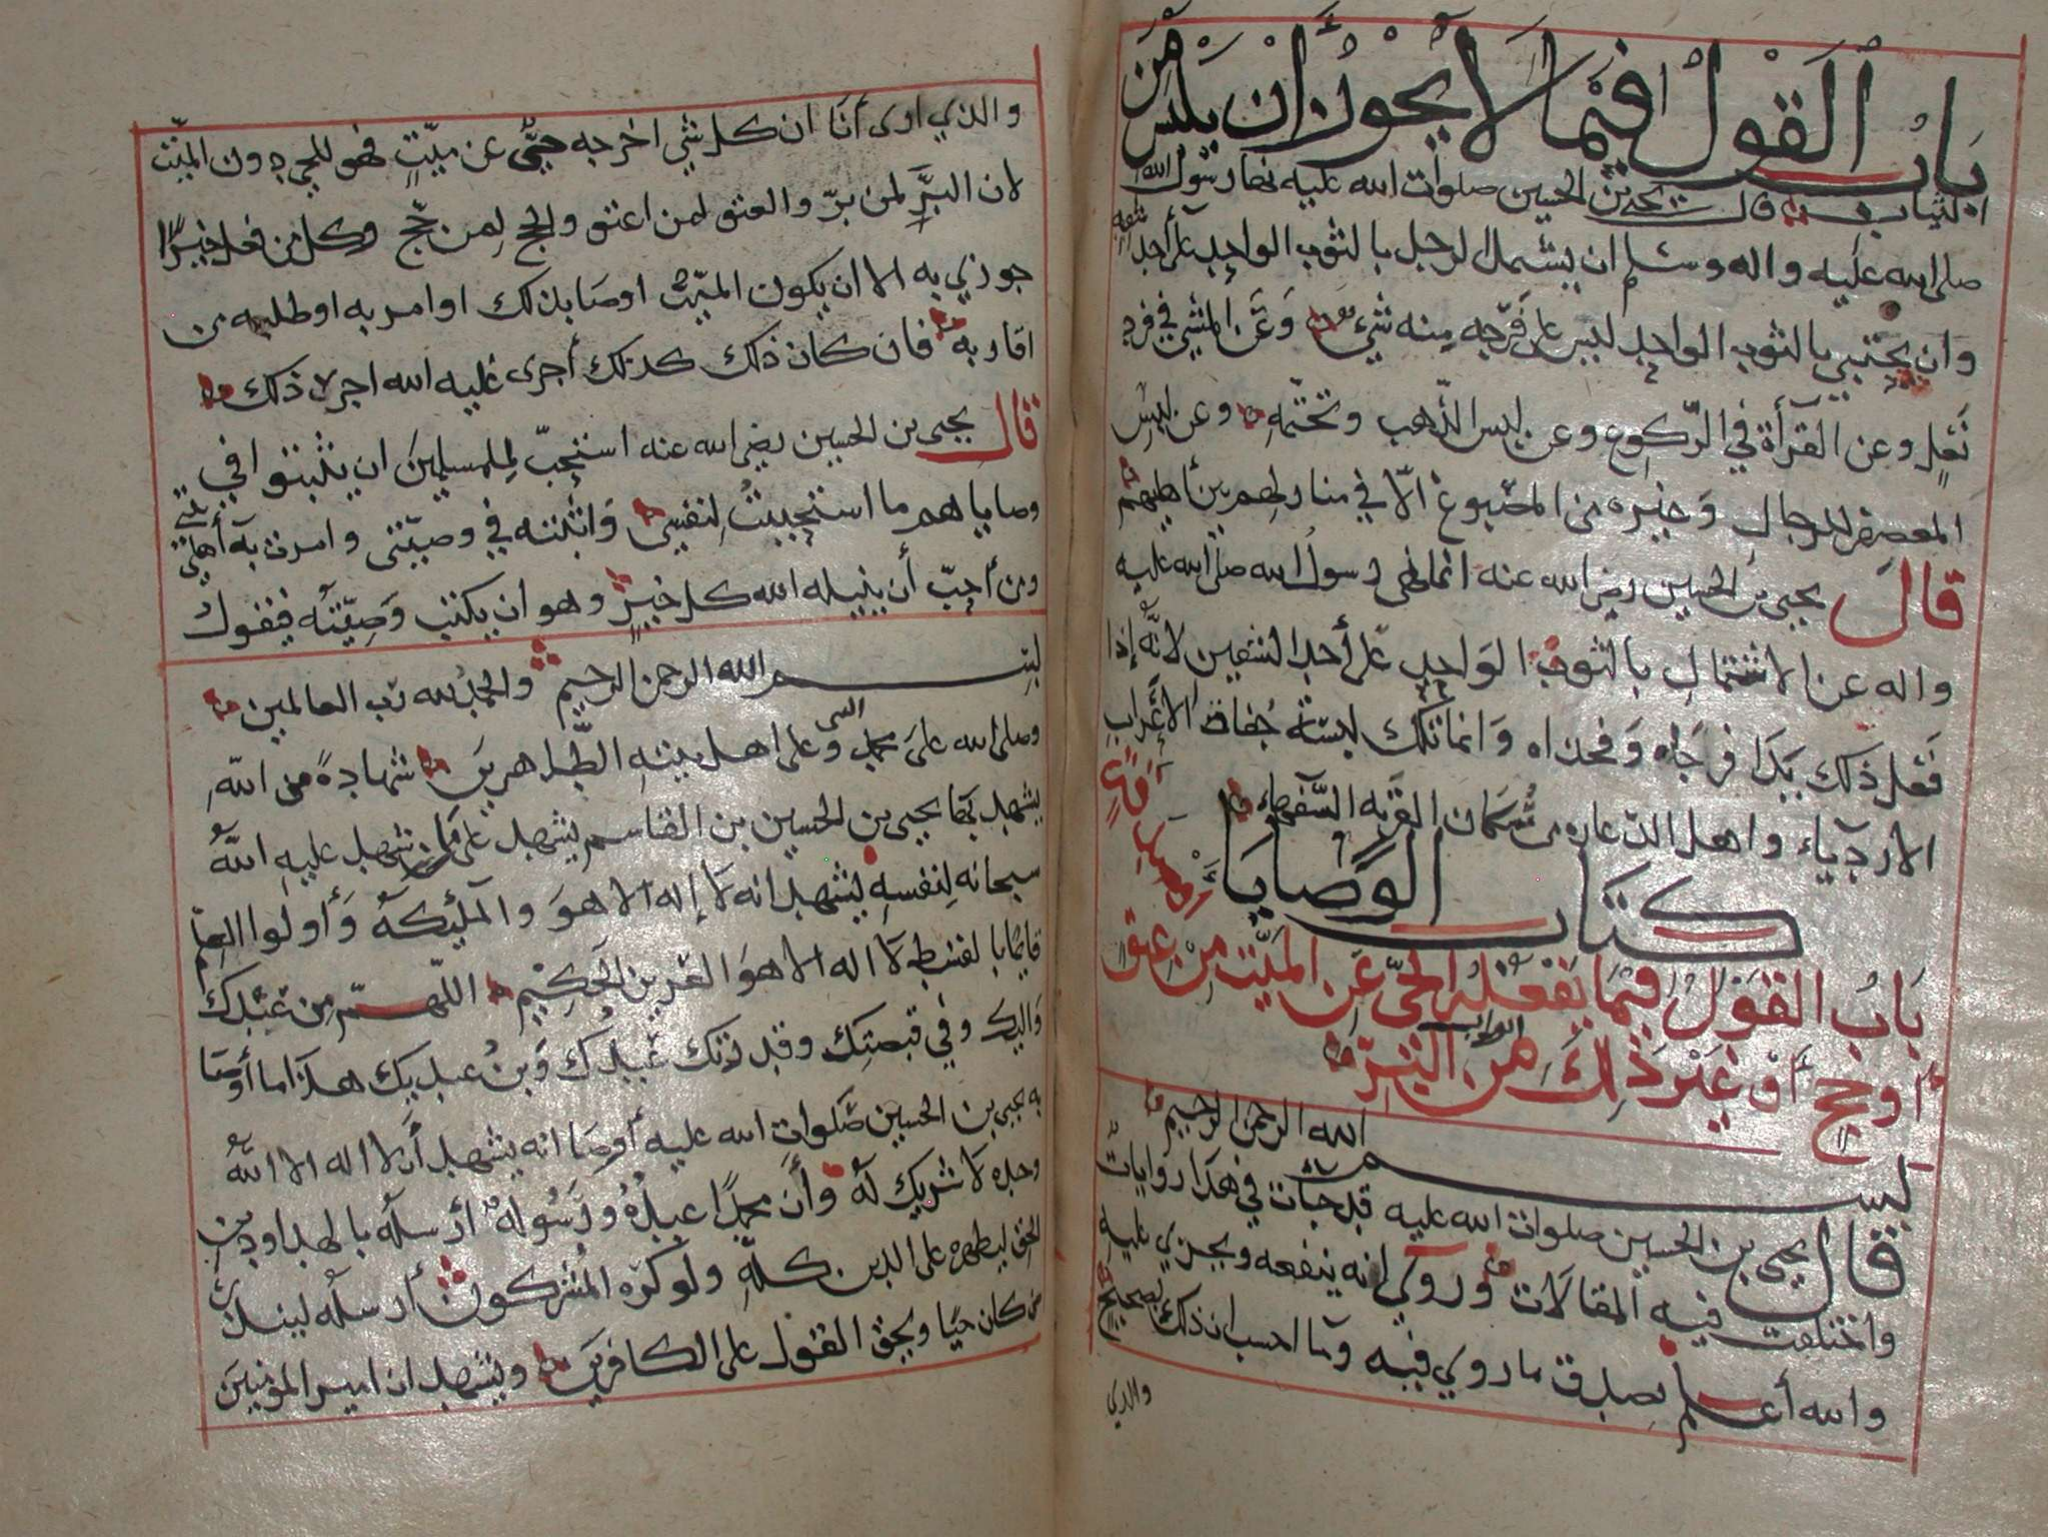 باب القول فيما لا يجوز أن يلبس من
الثياب قال يحيى بن الحسين صلوات الله عليه نها رسول الله
صلى الله عليه واله وسلم ان يشتمل الرجل بالثوب الواحد على أحد شقيه
وان يحتبي بالثوب الواحد ليس على فرجه منه شيء وعن المشي في فرد
نعل وعن القرأة في الركوع وعن لبس الذهب وتختمه وعن لبس
المعصفر للرجال وغيره من المصبوغ الا في منازلهم بين أهليهم
قال يحيى بن الحسين رضي الله عنه انما نهى رسول الله صلى الله عليه
واله عن الاشتمال بالثوب الواحد على أحد الشقين لانه إذا
فعل ذلك بدا فرجاه وفخذاه وانما تلك لبسة جفاة الأعراب
الاردياء واهل الذعاره من سكان القريه السفهاء
كتاب الوصايا
باب القول فيما يفعله الحي عن الميت من عتق أو صدقة أو صيام
أو حج أو غير ذلك من البر
ابواب
بسم الله الرحمن الرحيم
قال يحيى بن الحسين صلوات الله عليه قد جات في هذا روايات
واختلفت فيه المقالات وروي انه ينفعه ويجزي عليه
والله أعلم بصدق ما روي فيه وما احسب ان ذلك بصحيح
والذي
والذي ارى أنا ان كل شي اخرجه حي عن ميت فهو للحي دون الميت
لان البر لمن بر والعتق لمن اعتق والحج لمن حج وكل من فعل خيرا
جوزي به الا ان يكون الميت اوصا بذلك او امر به او طلبه من
اقاربه فان كان ذلك كذلك أجرى عليه الله اجر ذلك
قال يحيى بن الحسين رضي الله عنه استحب للمسلمين ان يثبتوا في
وصاياهم ما استحببت لنفسي واثبته في وصيتي وامرت به أهلي
ومن أحب أن ينيله الله كل خير وهو ان يكتب وصيته فيقول
بسم الله الرحمن الرحيم والحمد لله رب العالمين
وصلى الله على محمد النبي وعلى اهل بيته الطاهرين شهادة من الله
يشهد بها يحيى بن الحسين بن القاسم يشهد على ما شهد عليه الله
سبحانه لنفسه يشهد انه لا إله الا هو والملئكة وأولوا العلم
قايما بالقسط لا اله الا هو العزيز الحكيم اللهم من عندك
واليك وفي قبضتك وقدرتك عبدك وبن عبديك هذا ما أوصا
به يحيى بن الحسين صلوات الله عليه أوصا انه يشهد أن لا اله الا الله
وحده لا شريك له وأن محمدا عبده ورسوله أرسله بالهدا ودين
الحق ليظهره على الدين كله ولو كره المشركون أرسله لينذر
من كان حيا ويحق القول على الكافرين ويشهد ان امير المؤمنين